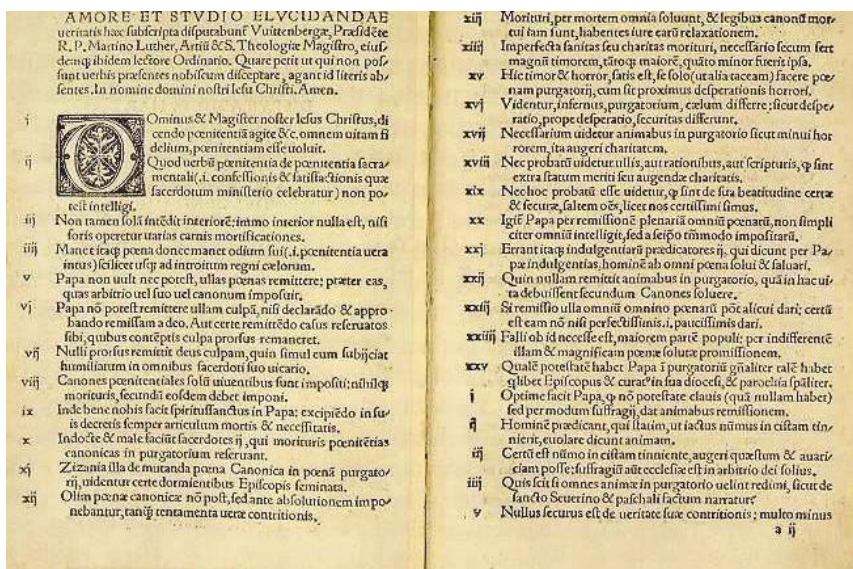 AMORE ET STVDIO ELVCIDANDAE
ueritatis hæc subscripta disputabunt̃ Vuittenbergæ, Præsidẽte
R. P. Martino Luther, Artiũ & S. Theologiæ Magistro, eius-
demq; ibidem lectore Ordinario. Quare petit ut qui non pos-
sunt uerbis præsentes nobiscum disceptare, agant id literis ab-
sentes. In nomine domini nostri Iesu Christi. Amen.
i Ominus & Magister noster Iesus Christus, di
cendo pœnitentiã agite &c. omnem uitam fi
delium, pœnitentiam esse uoluit.
ij Quod uerbũ pœnitentia de pœnitentia sacra-
mentali (.i. confessionis & satisfactionis quæ
sacerdotum ministerio celebratur) non po-
test intelligi.
iij Non tamen solã intẽdit interiorẽ: immo interior nulla est, nisi
foris operetur uarias carnis mortificationes.
iiij Manet itaq; pœna donec manet odium sui (.i. pœnitentia uera
intus) scilicet usq; ad introitum regni cælorum.
v Papa non uult nec potest, ullas pœnas remittere: præter eas,
quas arbitrio uel suo uel canonum imposuit.
vj Papa nõ potest remittere ullam culpã, nisi declarãdo & appro-
bando remissam a deo. Aut certe remittẽdo casus reseruatos
sibi, quibus contẽptis culpa prorsus remaneret.
vij Nulli prorsus remittit deus culpam, quin simul eum subijciat
humiliatum in omnibus sacerdoti suo uicario.
viij Canones pœnitentiales solũ uiuentibus sunt impositi: nihilq;
morituris, secundũ eosdem debet imponi.
ix Inde bene nobis facit spiritussanctus in Papa: excipiẽdo in su-
is decretis semper articulum mortis & necessitatis.
x Indocte & male faciũt sacerdotes ij, qui morituris pœnitẽtias
canonicas in purgatorium reseruant.
xj Zizania illa de mutanda pœna Canonica in pœnã purgato-
rij, uidentur certe dormientibus Episcopis seminata.
xij Olim pœnæ canonicæ nõ post, sed ante absolutionem impo-
nebantur, tanq̃ tentamenta ueræ contritionis.
xiij Morituri, per mortem omnia soluunt, & legibus canonũ mor-
tui iam sunt, habentes iure earũ relaxationem.
xiiij Imperfecta sanitas seu charitas morituri, necessario secum fert
magnũ timorem, tãtoq; maiorẽ, quãto minor fuerit ipsa.
xv Hic timor & horror, satis est, se solo (ut alia taceam) facere pœ-
nam purgatorij, cum sit proximus desperationis horrori.
xvj Videntur, infernus, purgatorium, cælum differre: sicut despe-
ratio, prope desperatio, securitas differunt.
xvij Necessarium uidetur animabus in purgatorio sicut minui hor
rorem, ita augeri charitatem.
xviij Nec probatũ uidetur ullis, aut rationibus, aut scripturis, q̃ sint
extra statum meriti seu augendæ charitatis.
xix Nec hoc probatũ esse uidetur, q̃ sint de sua beatitudine certæ
& securæ, saltem oẽs, licet nos certissimi simus.
xx Igit̃ Papa per remissionẽ plenariã omniũ pœnarũ, non simpli
citer omniũ intelligit, sed a seipso tm̃modo impositarũ.
xxj Errant itaq; indulgentiarũ prædicatores ij, qui dicunt per Pa-
pæ indulgentias, hominẽ ab omni pœna solui & saluari.
xxij Quin nullam remittit animabus in purgatorio, quã in hac ui-
ta debuissent secundum Canones soluere.
xxiij Si remissio ulla omniũ omnino pœnarũ põt alicui dari: certũ
est eam nõ nisi perfectissimis .i. paucissimis dari.
xxiiij Falli ob id necesse est, maiorem partẽ populi: per indifferentẽ
illam & magnificam pœnæ solutæ promissionem.
xxv Qualẽ potestatẽ habet Papa ĩ purgatoriũ gñaliter talẽ habet
q̃libet Episcopus & curat⁹ in sua diocesi, & parochia sp̃aliter.
i Optime facit Papa, q̃ nõ potestate clauis (quã nullam habet)
sed per modum suffragij, dat animabus remissionem.
ij Hominẽ prædicant, qui statim, ut iactus nũmus in cistam tin-
nierit, euolare dicunt animam.
iij Certũ est nũmo in cistam tinniente, augeri quæstum & auari-
ciam posse: suffragiũ aũt ecclesiæ est in arbitrio dei solius.
iiij Quis scit si omnes animæ in purgatorio uelint redimi, sicut de
sancto Seuerino & paschali factum narratur?
v Nullus securus est de ueritate suæ contritionis: multo minus
a ij